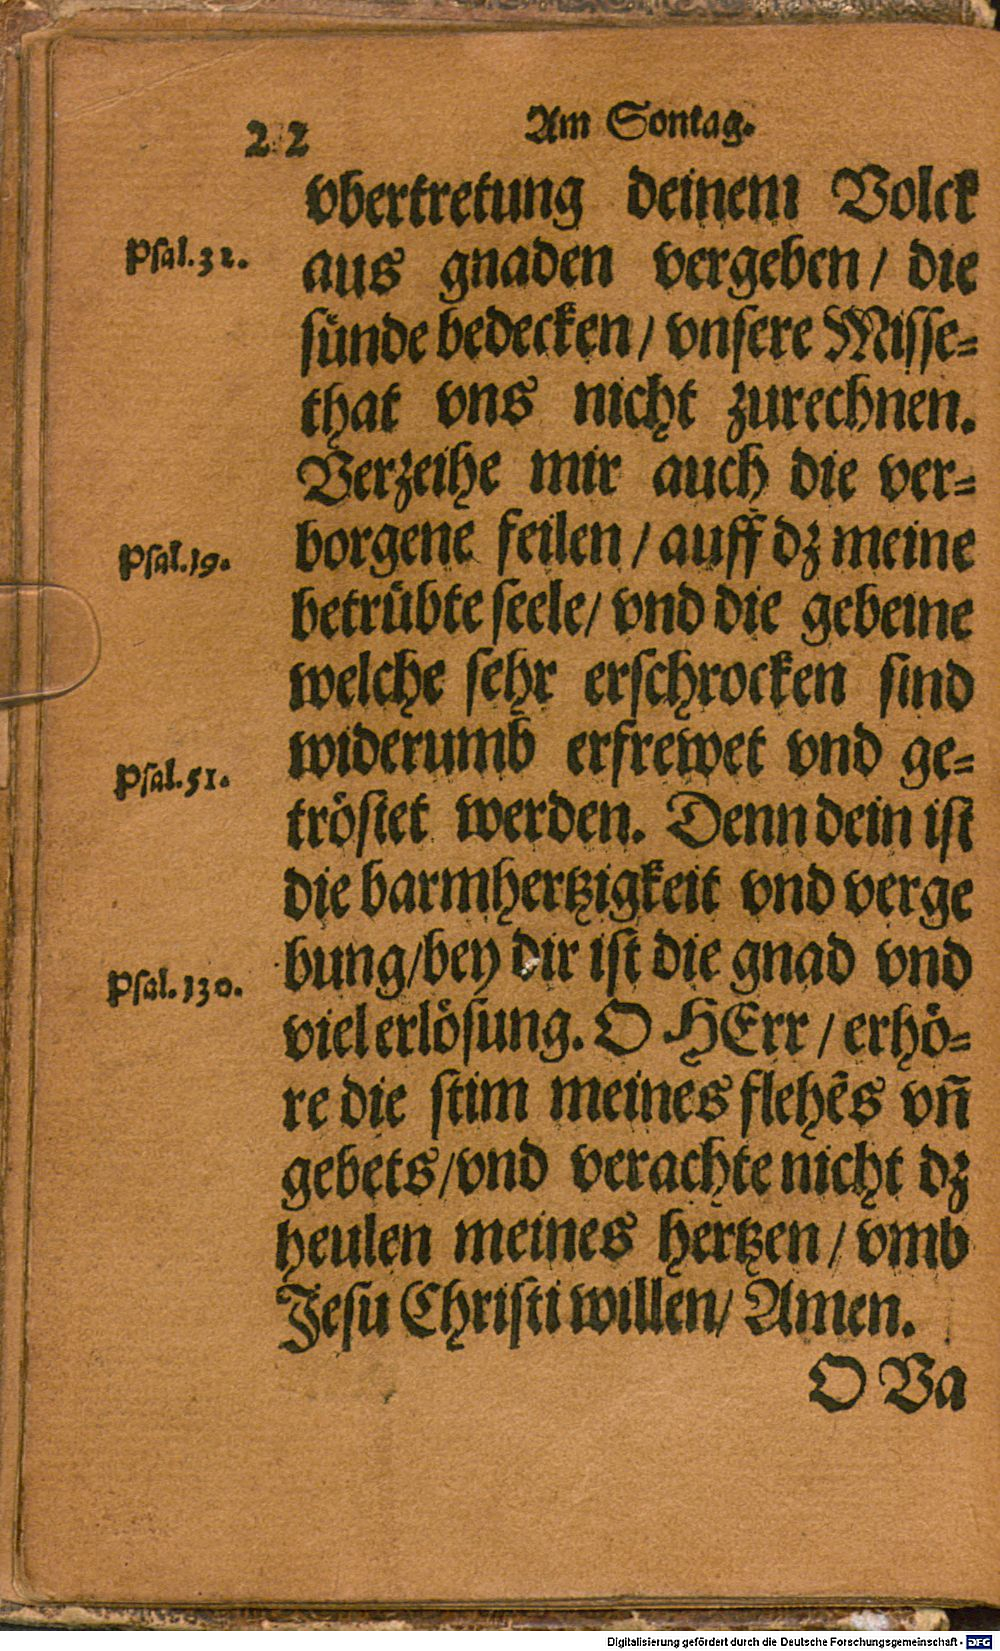 22 Am Sontag.
vbertretung deinem Volck
Psal.32. aus gnaden vergeben/ die
sünde bedecken/ vnsere Misse=
that vns nicht zurechnen.
Verzeihe mir auch die ver=
Psal.19. borgene feilen/ auff dz meine
betrübte seele/ vnd die gebeine
welche sehr erschrocken sind
widerumb erfrewet vnd ge=
Psal.51. tröstet werden. Denn dein ist
die barmhertzigkeit vnd verge
Psal.130. bung/bey dir ist die gnad vnd
viel erlösung. O HErr/ erhö=
re die stim meines flehẽs vñ
gebets/vnd verachte nicht dz
heulen meines hertzen/ vmb
Jesu Christi willen/ Amen.
O Va
Digitalisierung gefördert durch die Deutsche Forschungsgemeinschaft - DFG